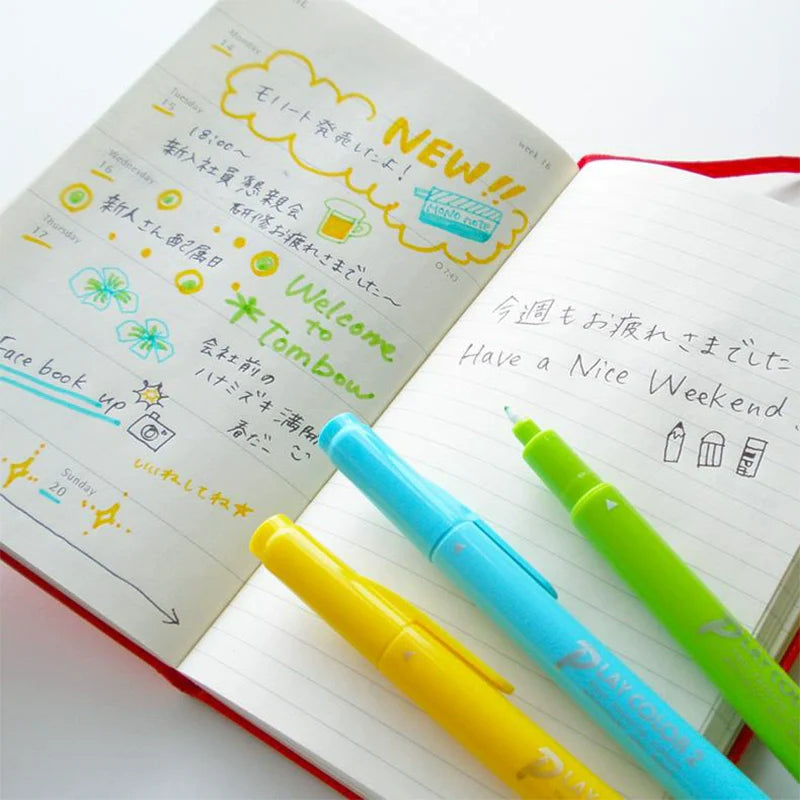 Monday
14
モノノート発売したよ!
NEW!!
week 16
Tuesday
15
18:00〜
新入社員懇親会
研修お疲れさまでした〜
MONO note
Wednesday
16
新人さん配属日
Thursday
17
Welcome
to
Tombow
会社前の
ハナミズキ満開
春だー
Face book up
いいねしてね★
Sunday
20
今週もお疲れさまでした
Have a Nice Weekend.
PLAY COLOR 2
PLAY
PLAY